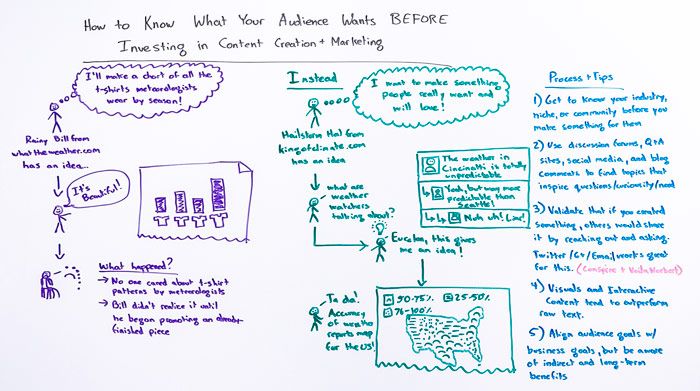 How to Know What Your Audience Wants BEFORE
Investing in Content Creation + Marketing
I'll make a chart of all the
t-shirts meteorologists
wear by season!
Rainy Bill from
whattheweather.com
has an idea...
It's
Beautiful!
What happened?
→ No one cared about t-shirt
patterns by meteorologists
→ Bill didn't realize it until
he began promoting an already-
finished piece
Instead
I want to make something
people really want and
will love!
Hailstone Hal from
kingofclimate.com
has an idea
what are
weather
watchers
talking about?
The weather in
Cincinatti is totally
unpredictable
Yeah, but way more
predictable than
Seattle!
Nuh uh! Liar!
Eureka, this gives
me an idea!
Ta da!
Accuracy
of weather
reports map
for the US!
50-75%
25-50%
76-100%
Process + Tips
1) Get to know your industry,
niche, or community before you
make something for them
2) Use discussion forums, Q+A
sites, social media, and blog
comments to find topics that
inspire questions/curiousity/need
3) Validate that if you created
something, others would share
it by reaching out and asking.
Twitter/G+/Email works great
for this. (Conspire + VoilaNorbert)
4) Visuals and Interactive
Content tend to outperform
raw text.
5) Align audience goals w/
business goals, but be aware
of indirect and long-term
benefits